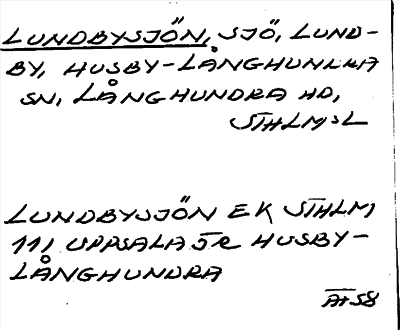 LUNDBYSJÖN, SJÖ, LUND-
BY, HUSBY-LÅNGHUNDRA
SN, LÅNGHUNDRA HD,
STHLMS L
LUNDBYSJÖN EK STHLM
111 UPPSALA JR HUSBY-
LÅNGHUNDRA
AF 58